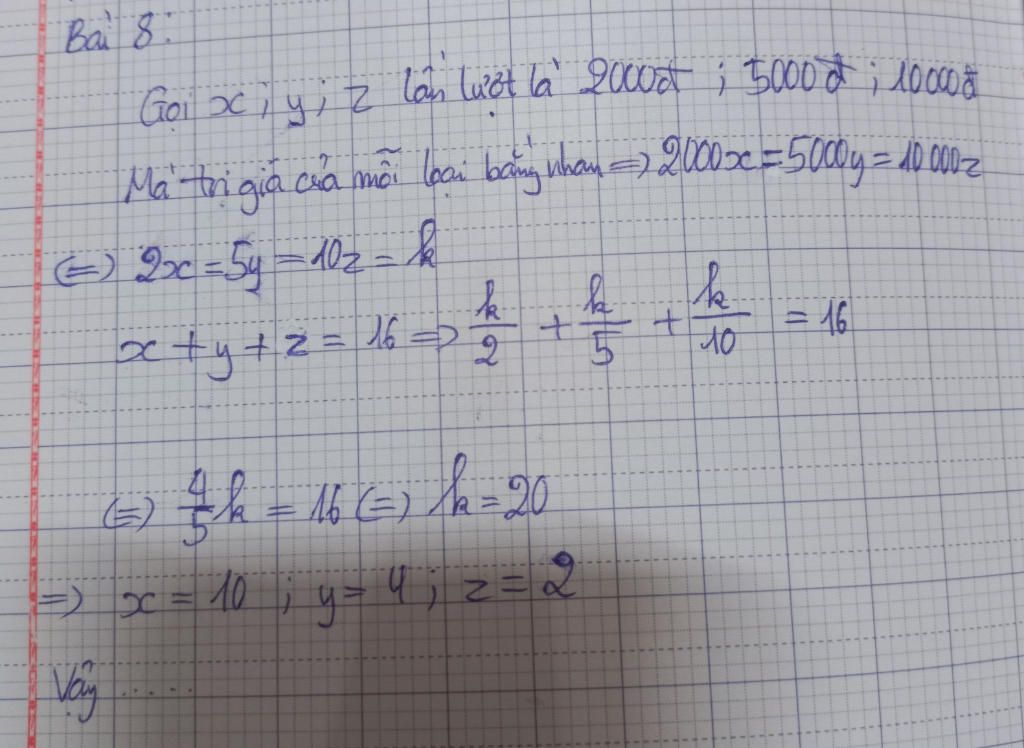 Bài 8:
Gọi x; y; z lần lượt là 2000đ; 5000đ; 10000đ
Mà trị giá của mỗi loại bằng nhau => 2000x = 5000y = 10000z
(=) 2x = 5y = 10z = k
x + y + z = 16 => k/2 + k/5 + k/10 = 16
(=) 4/5 k = 16 (=) k = 20
=) x = 10; y = 4; z = 2
Vậy ......